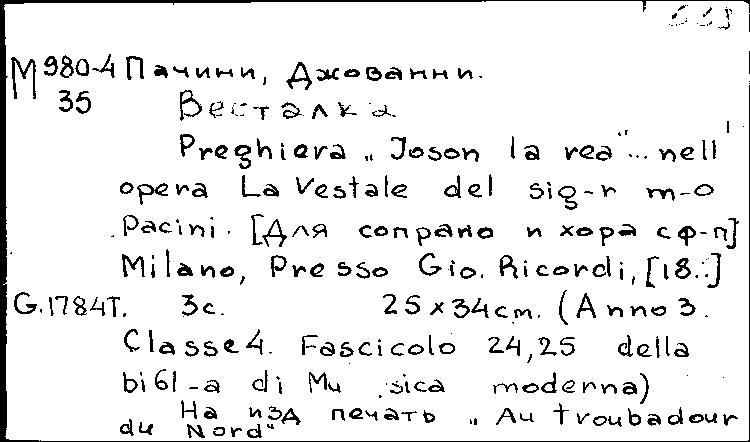 M 980-4 Пачини, Джованни.
35 Весталка
Preghiera „Joson la rea"... nell'
opera La Vestale del sig-r m-o
Pacini. [Для сопрано и хора с ф-п]
Milano, Presso Gio. Ricordi, [18..]
G.1784T. 3c. 25 x 34 cm. (Anno 3.
Classe 4. Fascicolo 24,25 della
bibl-a di Mu sica moderna)
На изд печать „Au troubadour
du Nord"